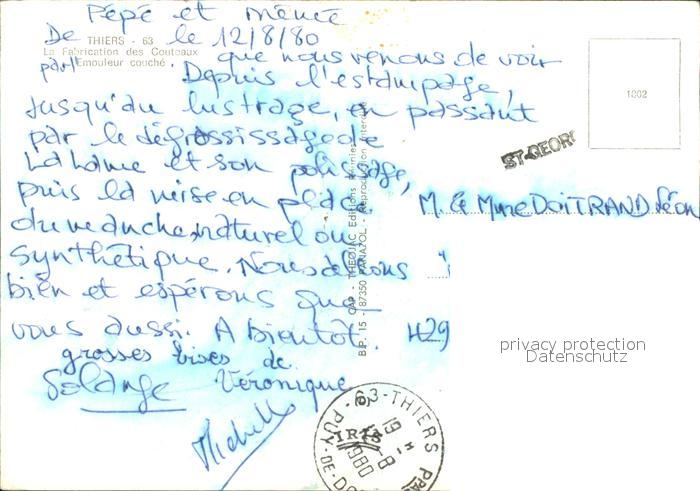 Pépé et mémée
De THIERS - 63 le 12/8/80
La Fabrication des Couteaux
par l'Emouleur couché. que nous venons de voir
Depuis l'estampage,
Jusqu'au lustrage, en passant
par le dégrossissage de
La Lame et son polissage,
puis la mise en place
du manche naturel ou
Synthétique. Nous allons
bien et espérons que
vous aussi. A bientôt.
grosses bises de
Solange Véronique
Michelle
1002
ST-GEOR
M. & Mme DOITRAND Léon
429
CAP - THEOJAC Editions
B.P. 15 - 87350 PANAZOL
63-THIERS
19 H
-8
1980
PUY-DE-DO
privacy protection
Datenschutz